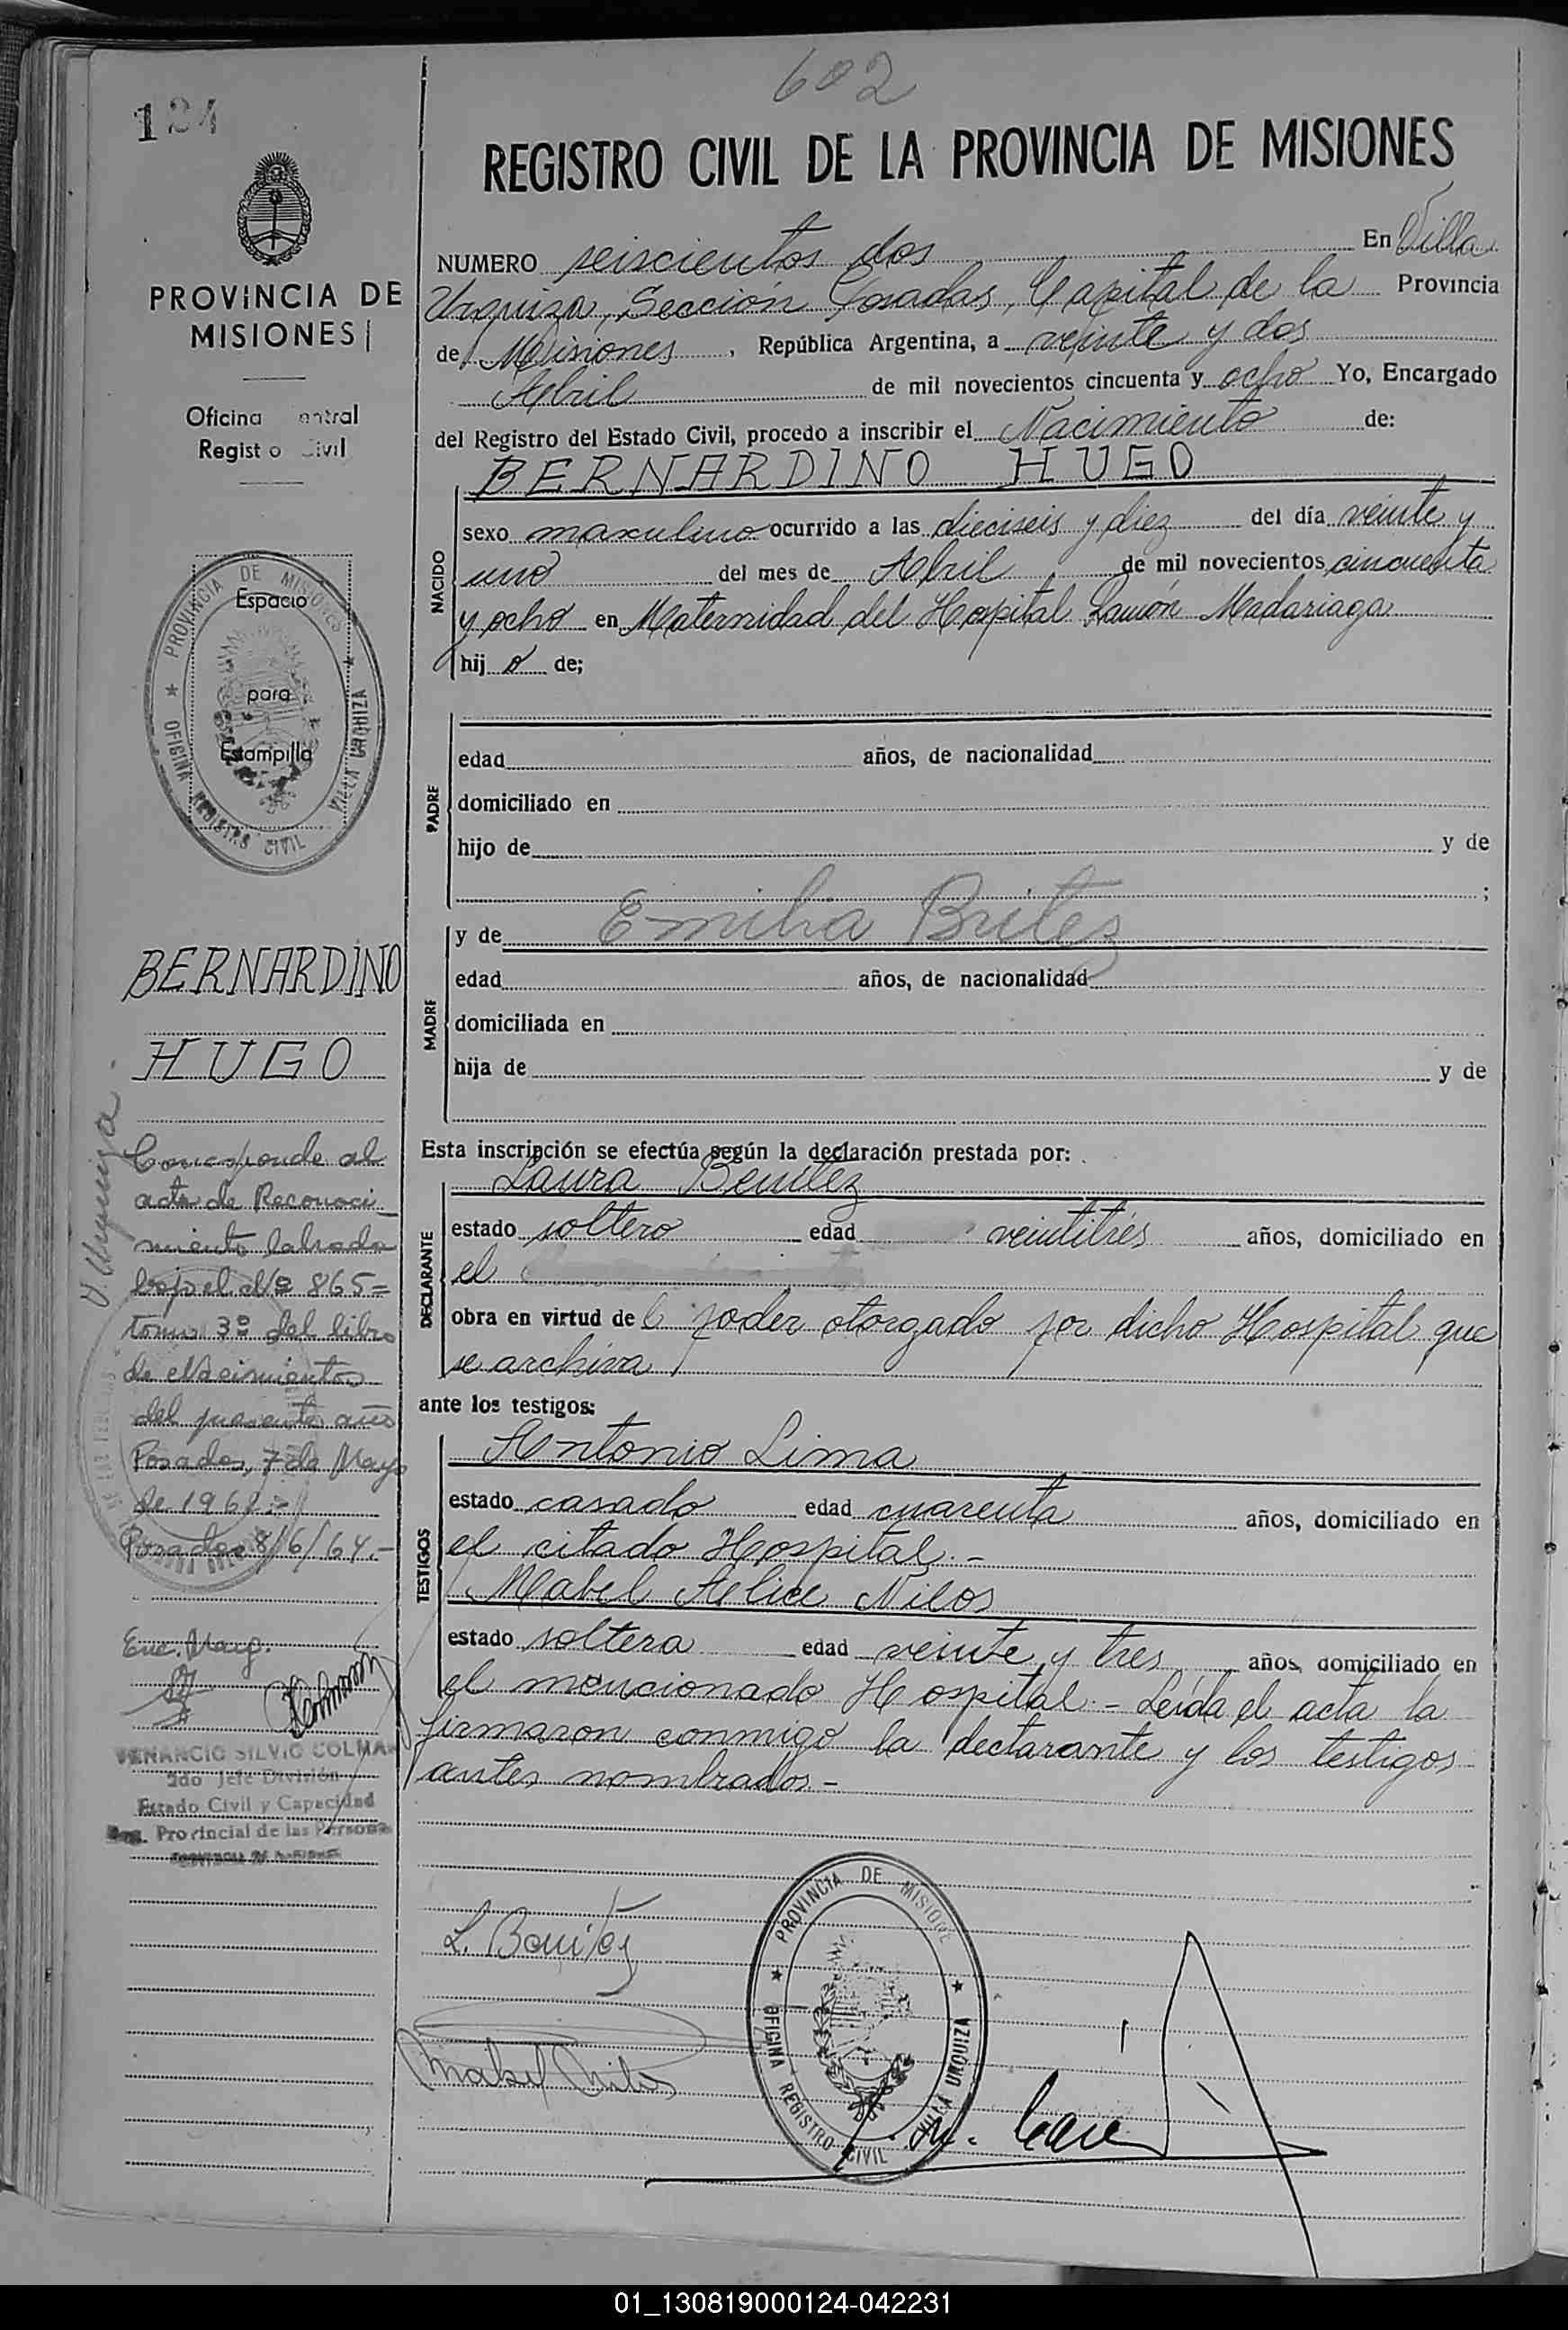 602
124
REGISTRO CIVIL DE LA PROVINCIA DE MISIONES
PROVINCIA DE
MISIONES
Oficina entral
Regist o Civil
NUMERO seiscientos dos En Villa
Urquiza, Sección Posadas, Capital de la Provincia
de Misiones, República Argentina, a veinte y dos
Abril de mil novecientos cincuenta y ocho Yo, Encargado
del Registro del Estado Civil, procedo a inscribir el Nacimiento de:
BERNARDINO HUGO
NACIDO
sexo masculino ocurrido a las dieciseis y diez del día veinte y
uno del mes de Abril de mil novecientos cincuenta
y ocho en Maternidad del Hospital Ramón Madariaga
hij o de;
PADRE
edad años, de nacionalidad
domiciliado en
hijo de y de
;
MADRE
y de Emilia Britez
edad años, de nacionalidad
domiciliada en
hija de y de
Esta inscripción se efectúa según la declaración prestada por:
DECLARANTE
Laura Benítez
estado soltero edad veintitrés años, domiciliado en
el
obra en virtud de poder otorgado por dicho Hospital que
se archiva
ante los testigos:
TESTIGOS
Antonio Lima
estado casado edad cuarenta años, domiciliado en
el citado Hospital.-
Mabel Alice Nilos
estado soltera edad veinte y tres años, domiciliado en
el mencionado Hospital.- Leída el acta la
firmaron conmigo la declarante y los testigos
antes nombrados-
L. Benitez
PROVINCIA DE MISIONES
OFICINA REGISTRO CIVIL
VILLA URQUIZA
PROVINCIA DE MISIONES
OFICINA REGISTRO CIVIL
VILLA URQUIZA
Espacio
para
Estampilla
BERNARDINO
HUGO
V. Urquiza
Corresponde al
acta de Reconoci
miento labrada
bajo el Nº 865=
tomo 3º del libro
de Nacimientos
del presente año
Posadas, 7 de Mayo
de 196
Posadas 8/6/64.-
Enc. Marg.
VENANCIO SILVIO COLMAN
2do Jefe División
Estado Civil y Capacidad
Reg. Provincial de las Personas
01_130819000124-042231